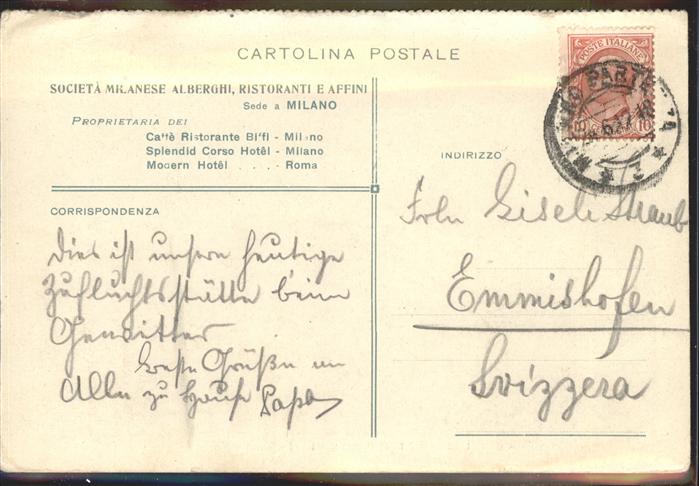 CARTOLINA POSTALE
SOCIETÀ MILANESE ALBERGHI, RISTORANTI E AFFINI
Sede a MILANO
PROPRIETARIA DEI
Caffè Ristorante Biffi - Milano
Splendid Corso Hotêl - Milano
Modern Hotêl . . . . - Roma
CORRISPONDENZA
Dies ist unsere heutige
Zufluchtsstätte beim
Gewitter
Beste Grüße an
Alle zu Hause Papa
POSTE ITALIANE
10
MILANO PARTENZA
INDIRIZZO
Frln Gisela Straub
Emmishofen
Svizzera